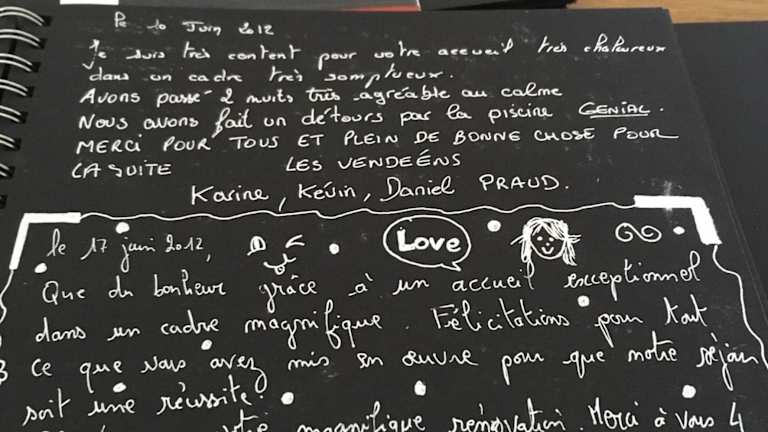 Le 10 Juin 2012
Je suis très content pour votre accueil très chaleureux
dans un cadre très somptueux.
Avons passé 2 nuits très agréable au calme
Nous avons fait un détours par la piscine GENIAL.
MERCI POUR TOUS ET PLEIN DE BONNE CHOSE POUR
LA SUITE LES VENDEÉNS
Karine, Kévin, Daniel PRAUD.
le 17 juin 2012,
Love
Que du bonheur grâce à un accueil exceptionnel
dans un cadre magnifique. Félicitations pour tout
ce que vous avez mis en œuvre pour que notre séjour
soit une réussite.
magnifique rénovation. Merci à vous 4